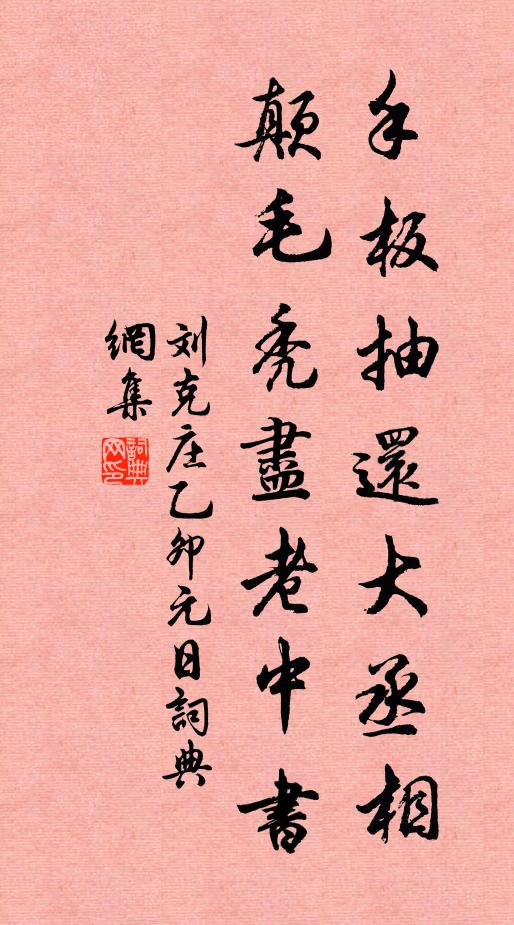 手板抽還大丞相
顛毛禿盡老中書
刘克庄乙卯元日詞典
網集
詞典網印